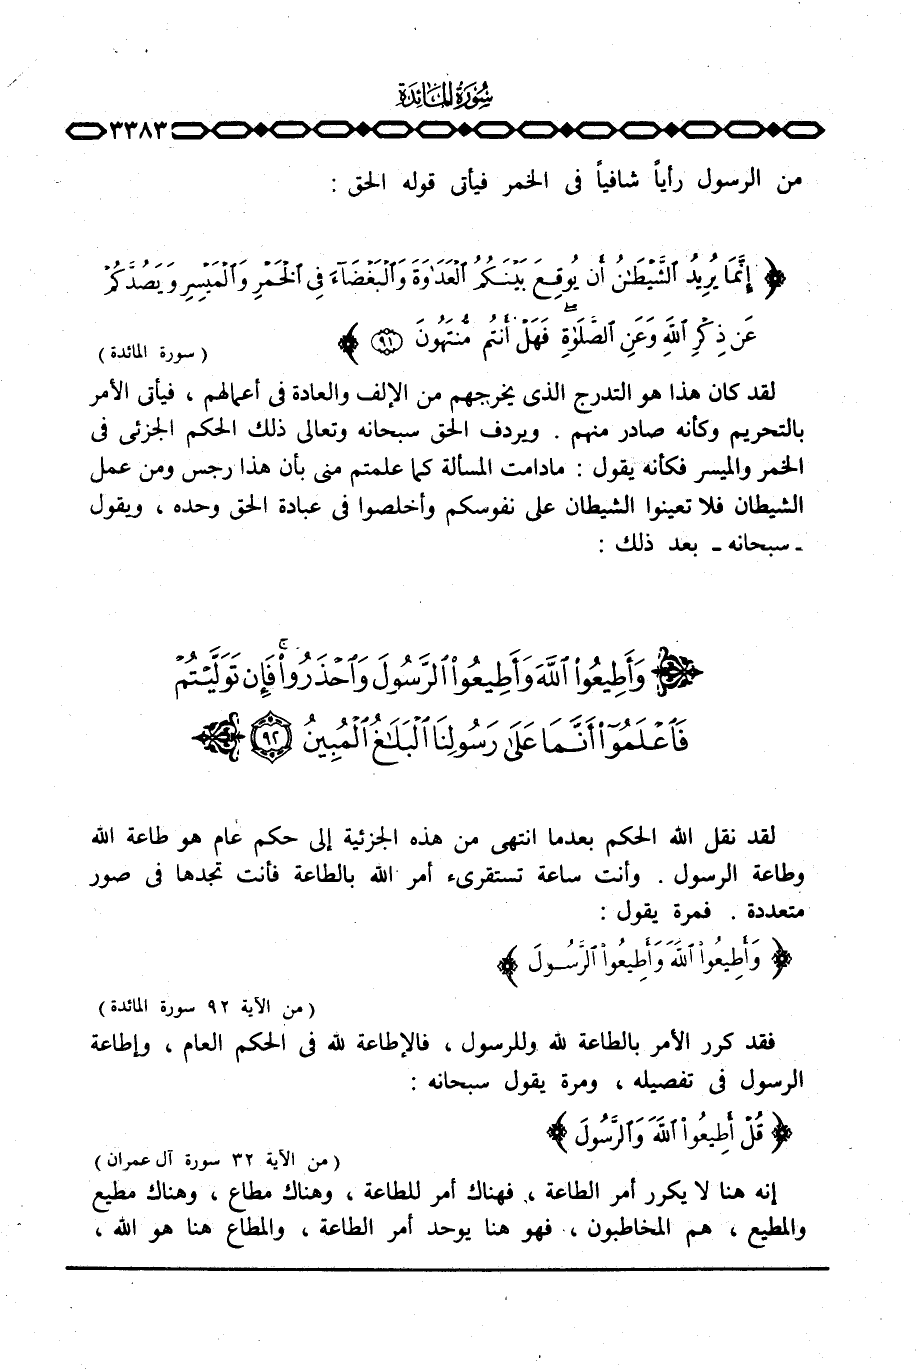 سورة المائدة
٣٣٨٣
من الرسول رأياً شافياً فى الخمر فيأتى قوله الحق :
﴿ إِنَّمَا يُرِيدُ ٱلشَّيْطَٰنُ أَن يُوقِعَ بَيْنَكُمُ ٱلْعَدَٰوَةَ وَٱلْبَغْضَآءَ فِى ٱلْخَمْرِ وَٱلْمَيْسِرِ وَيَصُدَّكُمْ
عَن ذِكْرِ ٱللَّهِ وَعَنِ ٱلصَّلَوٰةِ ۖ فَهَلْ أَنتُم مُّنتَهُونَ ﴿٩١﴾ ﴾
( سورة المائدة )
لقد كان هذا هو التدرج الذى يخرجهم من الإلف والعادة فى أعمالهم ، فيأتى الأمر
بالتحريم وكأنه صادر منهم . ويردف الحق سبحانه وتعالى ذلك الحكم الجزئى فى
الخمر والميسر فكأنه يقول : مادامت المسألة كما علمتم منى بأن هذا رجس ومن عمل
الشيطان فلا تعينوا الشيطان على نفوسكم وأخلصوا فى عبادة الحق وحده ، ويقول
ـ سبحانه ـ بعد ذلك :
﴿ وَأَطِيعُوا۟ ٱللَّهَ وَأَطِيعُوا۟ ٱلرَّسُولَ وَٱحْذَرُوا۟ ۚ فَإِن تَوَلَّيْتُمْ
فَٱعْلَمُوٓا۟ أَنَّمَا عَلَىٰ رَسُولِنَا ٱلْبَلَٰغُ ٱلْمُبِينُ ﴿٩٢﴾ ﴾
لقد نقل الله الحكم بعدما انتهى من هذه الجزئية إلى حكم عام هو طاعة الله
وطاعة الرسول . وأنت ساعة تستقرىء أمر الله بالطاعة فأنت تجدها فى صور
متعددة . فمرة يقول :
﴿ وَأَطِيعُوا۟ ٱللَّهَ وَأَطِيعُوا۟ ٱلرَّسُولَ ﴾
( من الآية ٩٢ سورة المائدة )
فقد كرر الأمر بالطاعة لله وللرسول ، فالإطاعة لله فى الحكم العام ، وإطاعة
الرسول فى تفصيله ، ومرة يقول سبحانه :
﴿ قُلْ أَطِيعُوا۟ ٱللَّهَ وَٱلرَّسُولَ ﴾
( من الآية ٣٢ سورة آل عمران )
إنه هنا لا يكرر أمر الطاعة ، فهناك أمر للطاعة ، وهناك مطاع ، وهناك مطيع
والمطيع ، هم المخاطبون ، فهو هنا يوحد أمر الطاعة ، والمطاع هنا هو الله ،